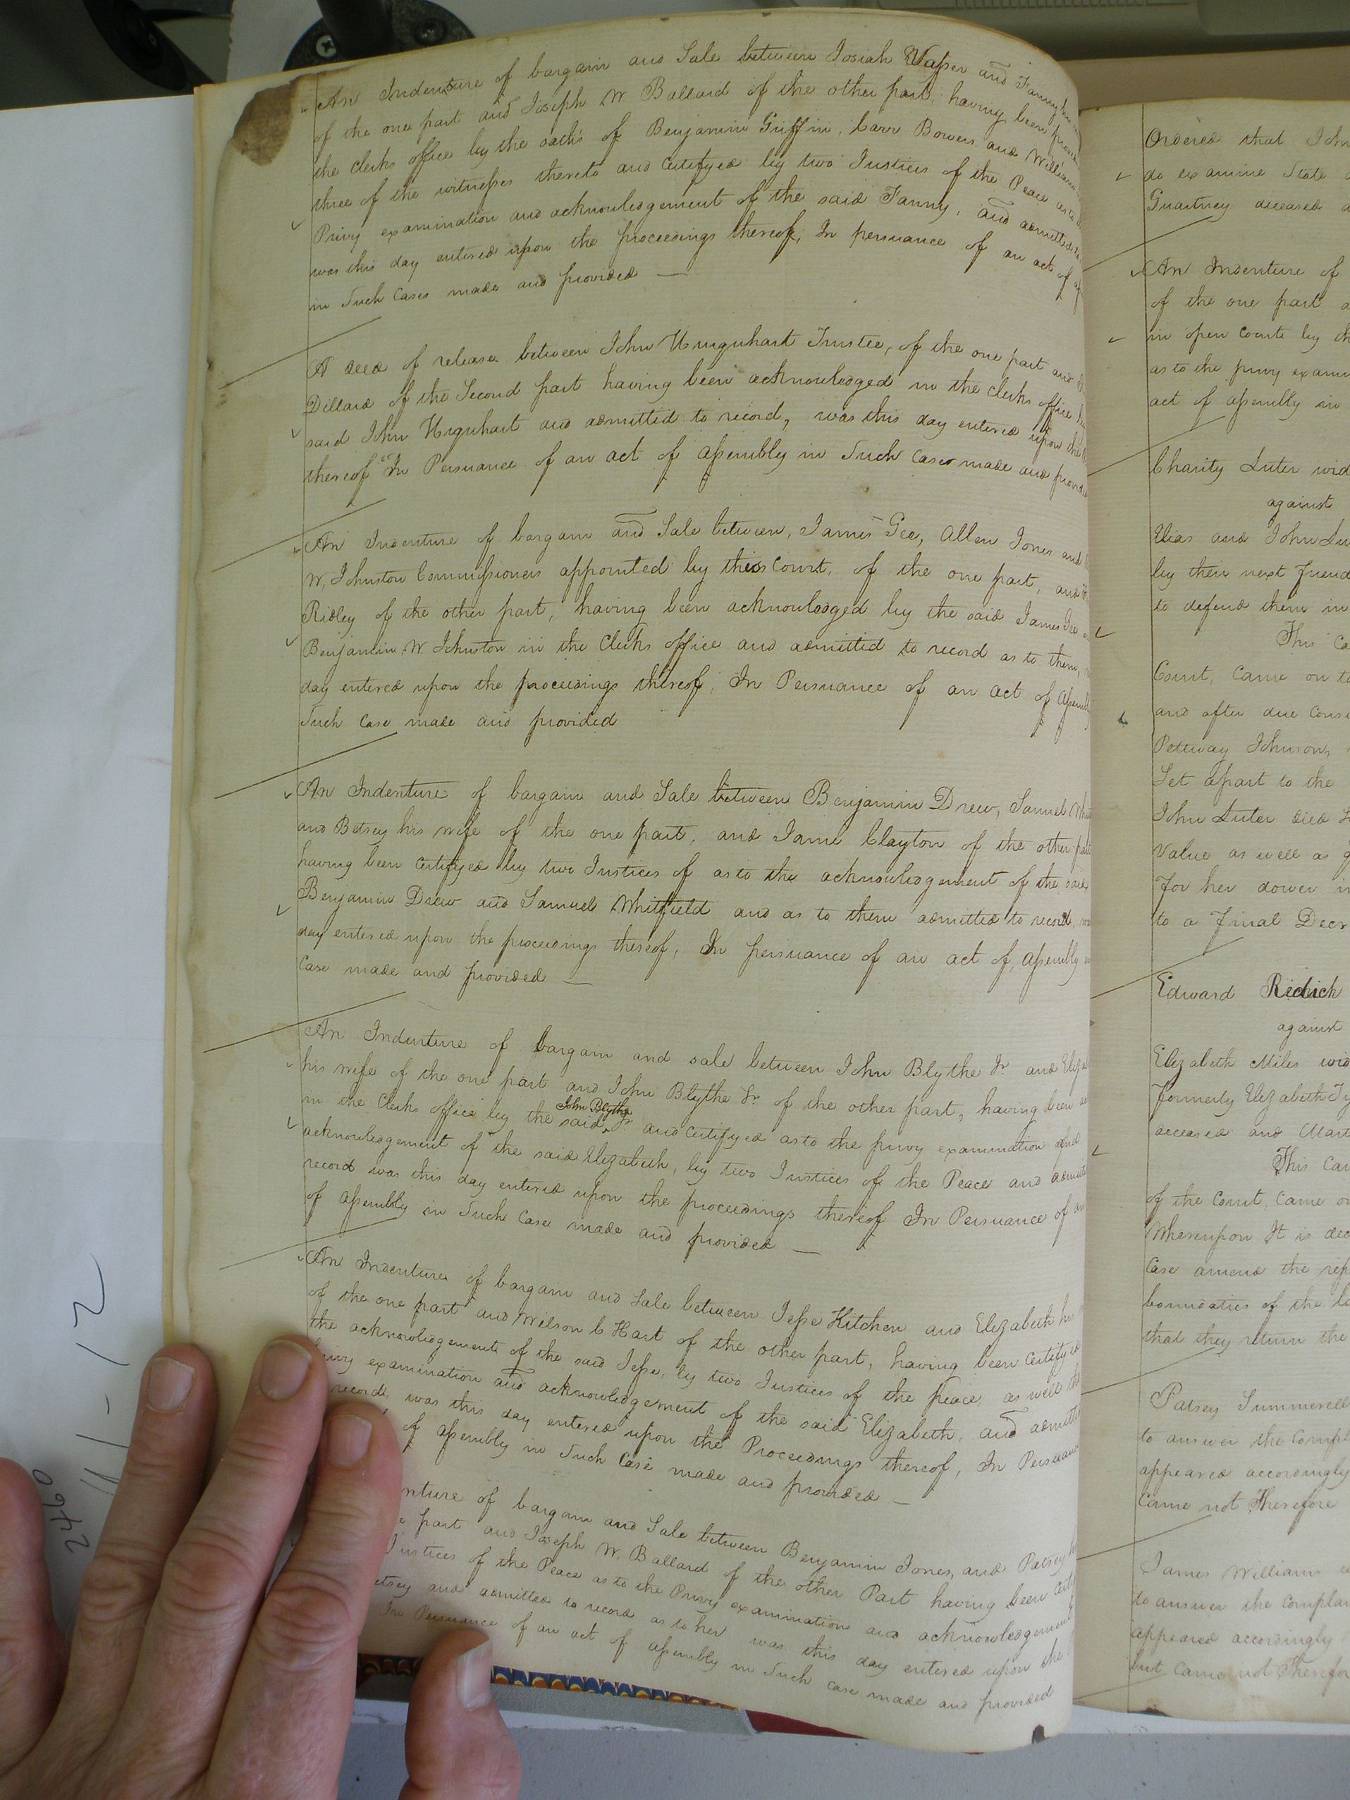 An Indenture of bargain and Sale between Josiah Vasser and Fanny
of the one part and Joseph W Ballard of the other part, having been
the clerks office by the oaths of Benjamin Griffin, Carr Bowers and William
three of the witnesses thereto and certifyed by two Justices of the Peace as to
Privy examination and acknowledgement of the said Fanny, and admitted
was this day entered upon the proceedings thereof, In persuance of an act of
in Such Cases made and provided —
A deed of release between John Urquhart Trustee, of the one part and
Dillard of the Second part having been acknowledged in the clerks office
said John Urquhart and admitted to record, was this day entered upon the
thereof In Persuance of an act of assembly in Such Cases made and
An Indenture of bargain and Sale between, James Gee, Allen Jones and
W, Johnston Commissioners appointed by this Court, of the one part, and
Ridley of the other part, having been acknowledged by the said James Gee
Benjamin W Johnston in the Clerks office and admitted to record as to them,
day entered upon the proceedings thereof, In Persuance of an act of
Such Case made and provided
An Indenture of bargain and Sale between Benjamin Drew, Samuel
and Betsey his wife of the one part, and Jamie Clayton of the other part
having been certifyed by two Justices of as to the acknowledgement of the said
Benjamin Drew and Samuel Whitfield and as to them admitted to record,
day entered upon the proceedings thereof, In persuance of an act of, assembly
Case made and provided —
An Indenture of bargain and sale between John Blythe Jr and
his wife of the one part and John Blythe Sr. of the other part, having been
John Blythe
in the Clerks office by the said Jr and certifyed as to the privy examination and
acknowledgement of the said Elizabeth, by two Justices of the Peace and
record was this day entered upon the proceedings thereof In Persuance of
of assembly in Such Case made and provided —
An Indenture of bargain and Sale between Jesse Kitchen and Elizabeth
of the one part and Wilson C Hart of the other part, having been certifyed
the acknowledgement of the said Jesse, by two Justices of the peace, as well
privy examination and acknowledgement of the said Elizabeth, and
record, was this day entered upon the Proceedings thereof, In Persuance
of assembly in Such Case made and provided —
nture of bargain and Sale between Benjamin Jones, and Patsey
part and Joseph W. Ballard of the other Part having been
Justices of the Peace as to the Privy examination and acknowledgement
and admitted to record as to her was this day entered upon the
In Persuance of an act of assembly in Such case made and provided
Ordered that John
do examine State
deceased
An Indenture of
of the one part
in open Court by
as to the privy
act of assembly in
Charity Luter
against
Elias and John
by their next friend
to defend them in
This
Court, came on
and after due
Petway Johnson,
Set apart to the
John Luter died
value as well as
for her dower in
to a final
Edward Redick
against
Elizabeth Miles
formerly Elizabeth
deceased and
This
of the Court, came
Whereupon It is
Case amend the
boundaries of the
that they return the
Patsey
to answer the
appeared accordingly
came not Therefore
James Williams
to answer the
appeared accordingly
but came not
11-12
2460